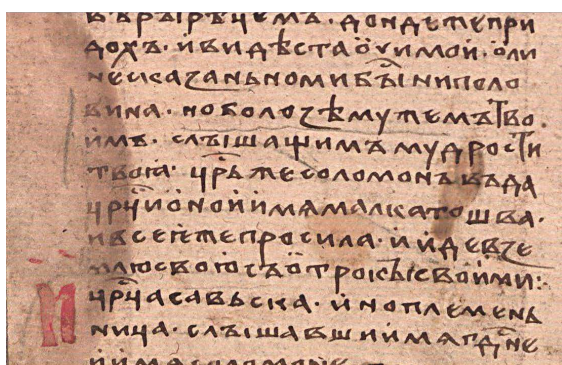 вѣрьірѣчемъ · дондеже при
дохъ · и видѣста ѻчи мои · ѻли
не сказаньно ми бы ни поло
вина · но бολο зѣ мужемъ тво
имъ · слышащимъ мудрости
твоꙗ · цр҃ь же соломонъ въда
цр҃ци ѻнои имѧ малкатошва ·
и все еже просила · и иде в зе
млю свою съ ѻтрокы своими :·
цр҃ца савьска · иноплемень
ница · слышавши имѧ гд҃не
и имѧ соломоне